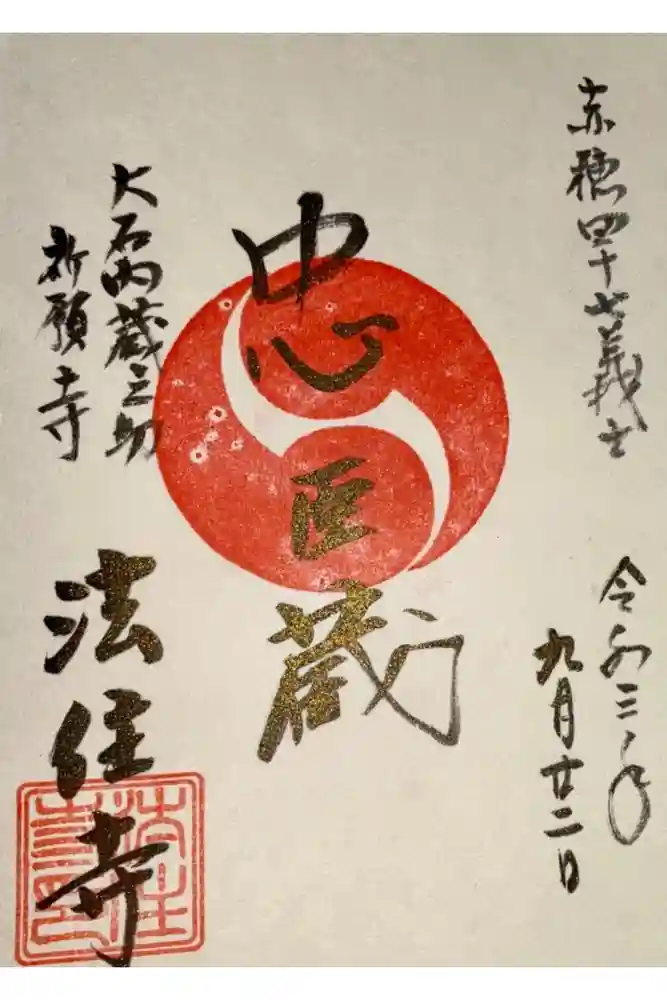 赤穂四十七義士
令和三年
九月廿二日
忠臣蔵
大石内蔵之助
祈願寺
法住寺